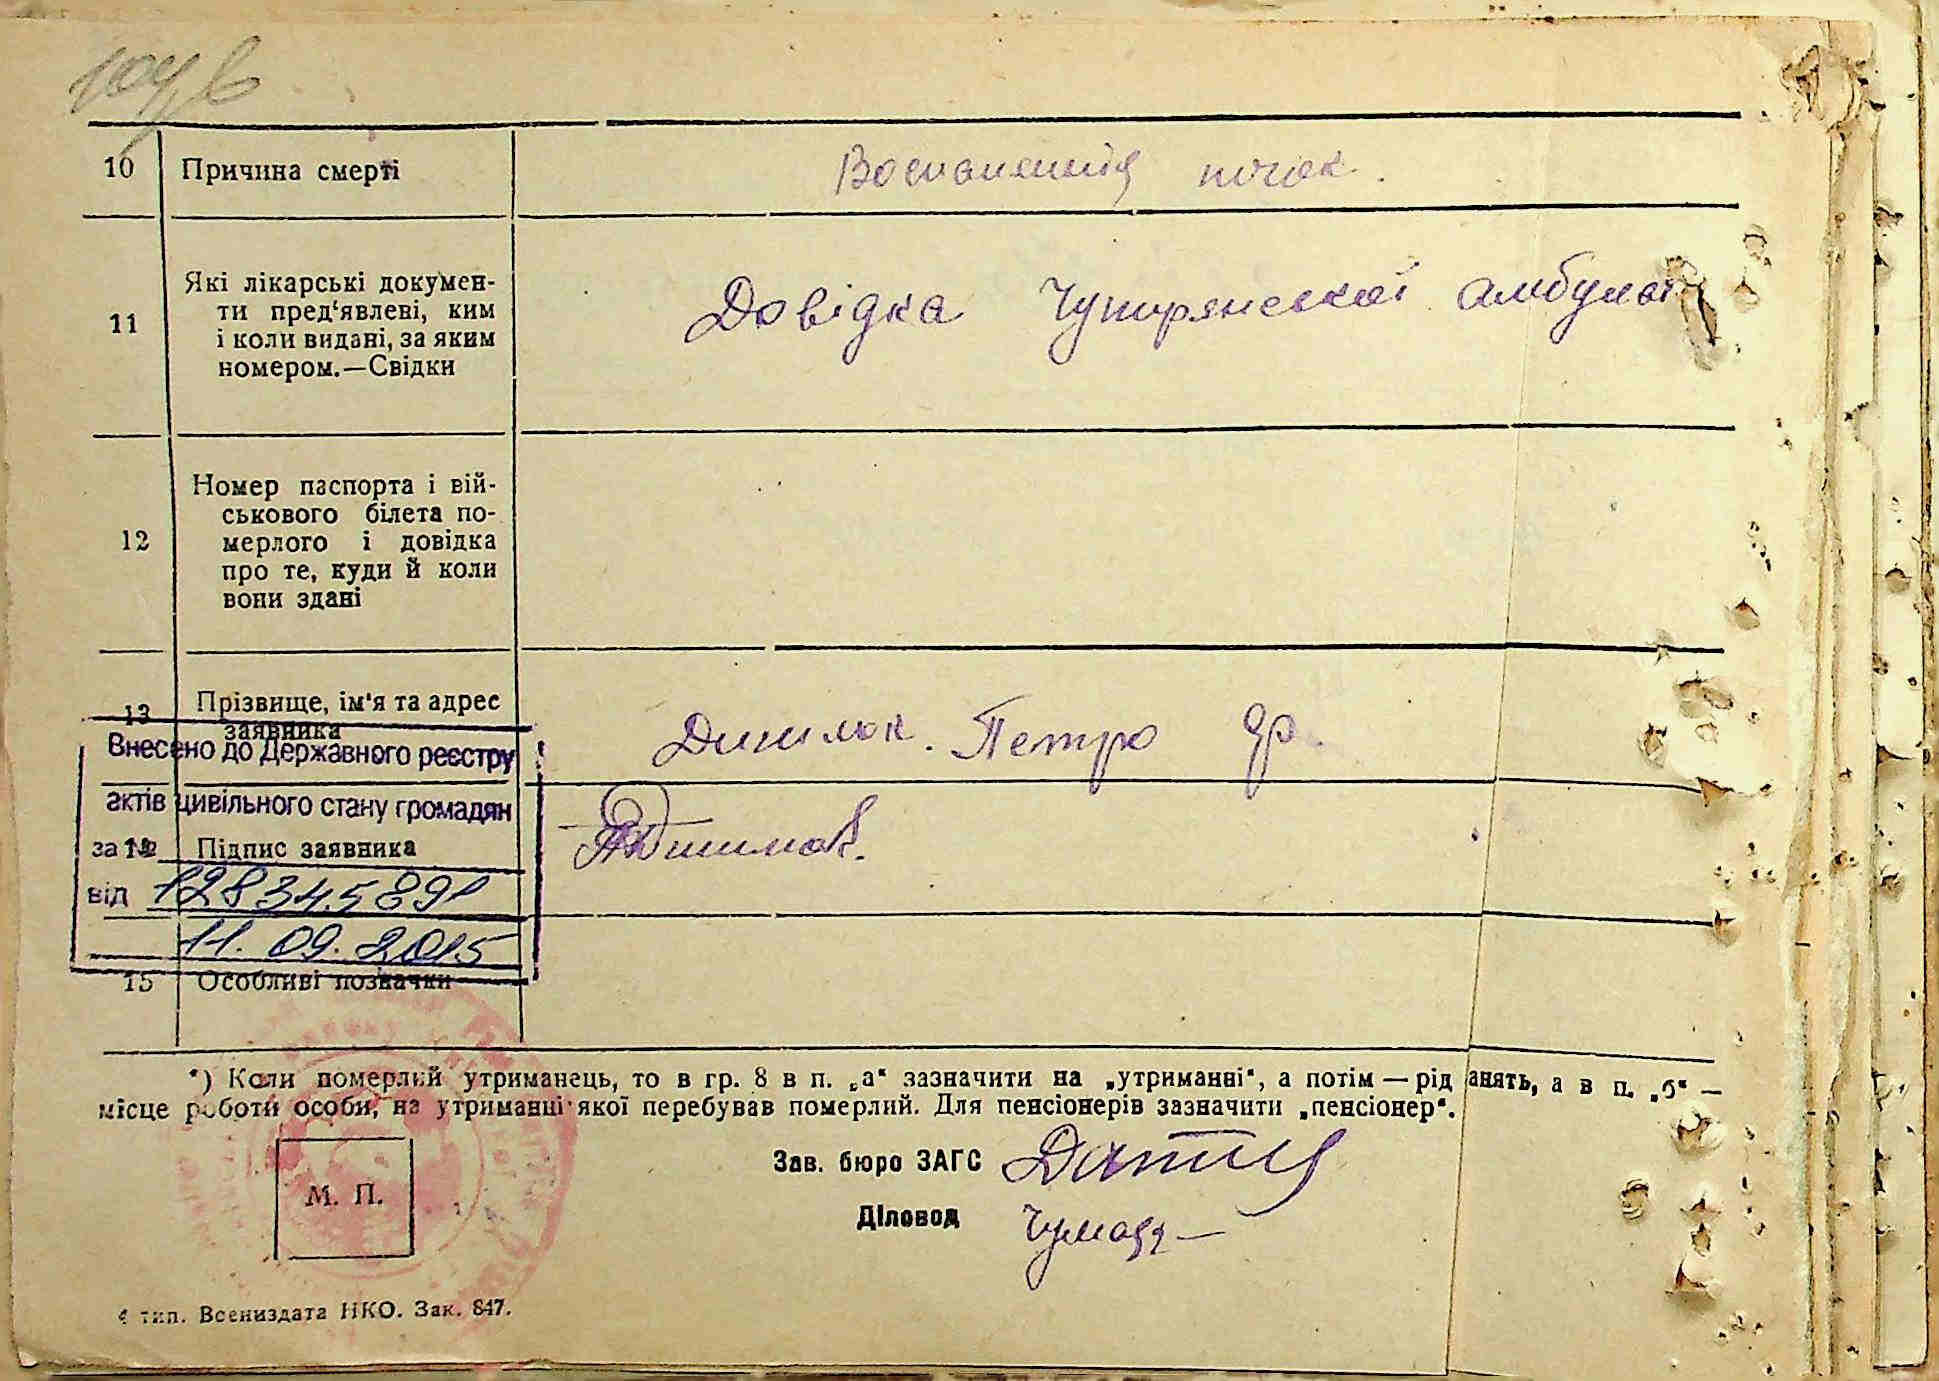 10 Причина смерті
Воспаленния почок.
11 Які лікарські докумен-
ти пред‘явлені, ким
і коли видані, за яким
номером.—Свідки
Довідка Чупирянської амбулат
12 Номер паспорта і вій-
ськового білета по-
мерлого і довідка
про те, куди й коли
вони здані
13 Прізвище, ім‘я та адрес
заявника
Петро Яр.
Внесено до Державного реєстру
актів цивільного стану громадян
за №
14 Підпис заявника
від 12834589
11.09.2015
15 Особливі позначки
*) Коли померлий утриманець, то в гр. 8 в п. „а“ зазначити на „утриманні“, а потім — рід занять, а в п. „б“ —
місце роботи особи, на утриманні якої перебував померлий. Для пенсіонерів зазначити „пенсіонер“.
Зав. бюро ЗАГС
М. П.
Діловод
4 тип. Воениздата НКО. Зак. 847.